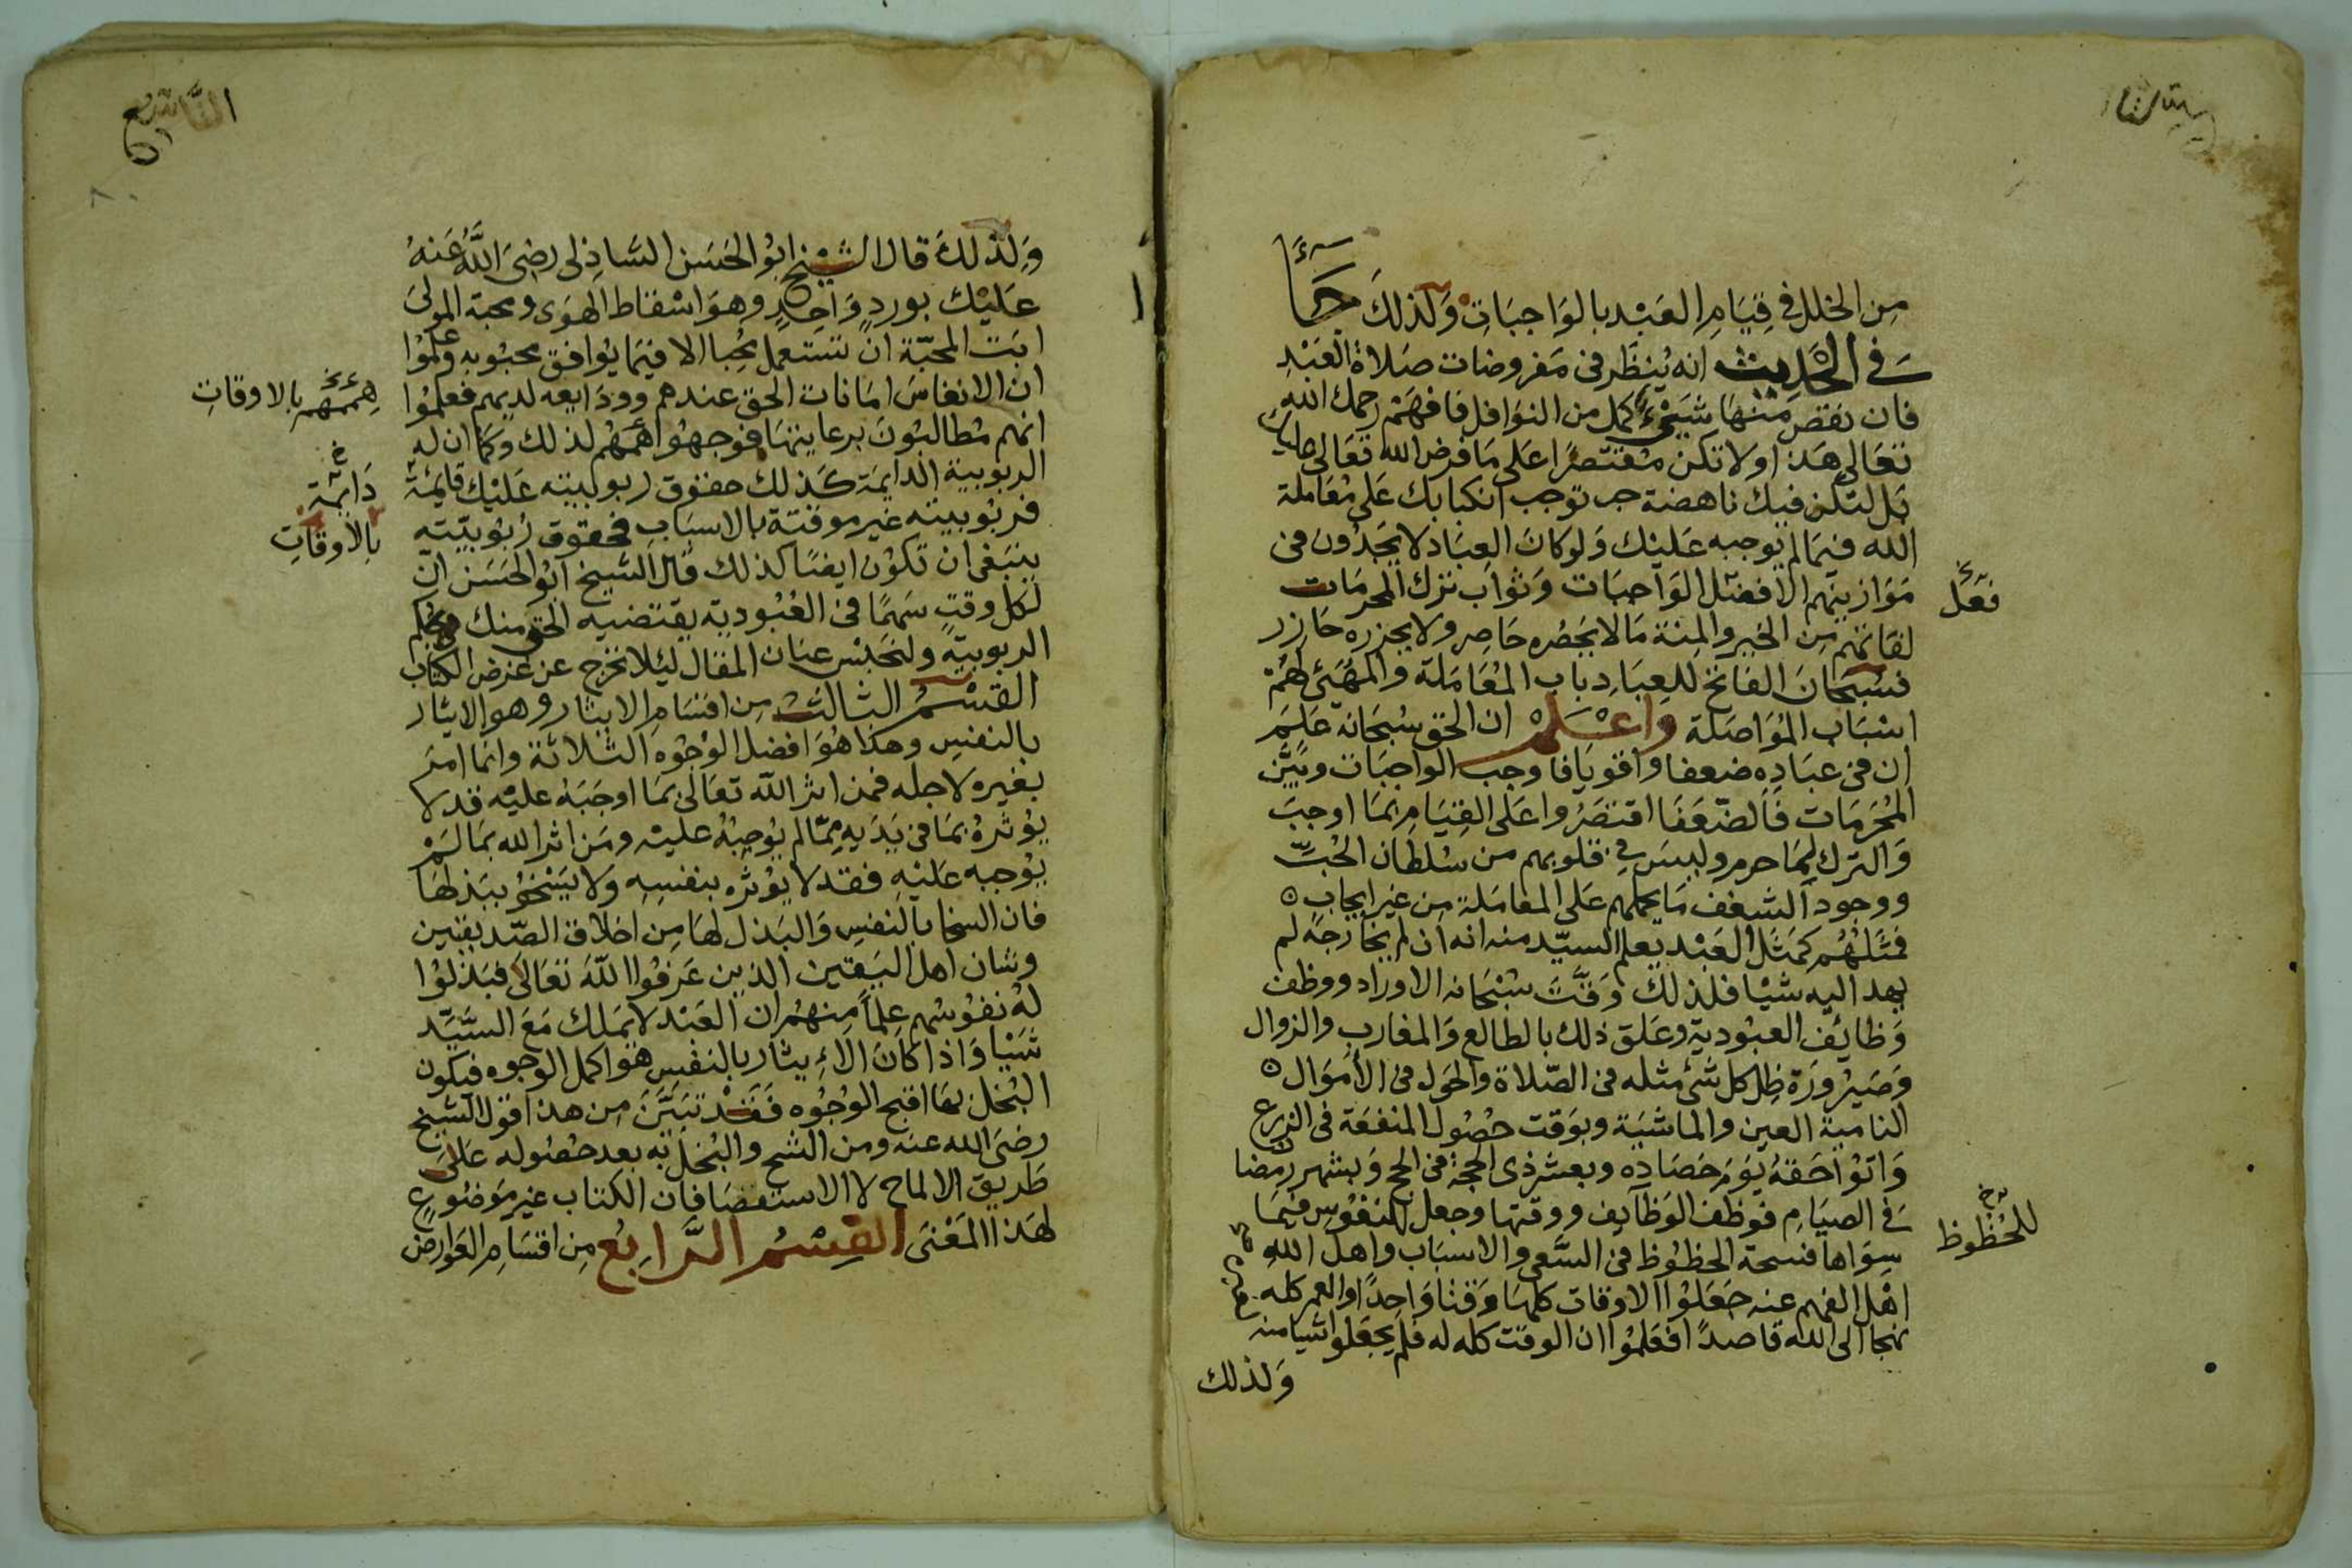 من الخلل في قيام العبد بالواجبات ولذلك جاء
في الحديث انه ينظر في مفروضات صلاة العبد
فان نقص منها شيئ كمل من النوافل فافهم رحمك الله
تعالى هذا ولا تكن مقتصرا على ما فرض الله تعالى عليك
بل لتكن فيك ناهضة حب توجب انكبابك على معاملة
الله فيما لم يوجبه عليك ولو كان العباد لا يجدون في
موازينهم الا فضل الواجبات وثواب ترك المحرمات
فعل
لفاتهم من الخير والمنة ما لا يحصره حاصر ولا يحزره حازر
فسبحان الفاتح للعباد باب المعاملة والمهيئ لهم
اسباب المواصلة واعلم ان الحق سبحانه علم
ان في عباده ضعفا واقويا فاوجب الواجبات وبين
المحرمات فالضعفا اقتصروا على القيام بما اوجب
والترك لما حرم وليس في قلوبهم من سلطان الحب
ووجود الشغف ما يحملهم على المعاملة من غير ايجاب
فمثلهم كمثل العبد يعلم السيد منه انه ان لم يخارجه لم
يهد اليه شيا فلذلك وقت سبحانه الاوراد ووظف
وظائف العبودية وعلق ذلك بالطالع والمغارب والزوال
وصيرورة ظل كل شئ مثله في الصلاة والحول في الاموال
النامية العين والماشية وبوقت حصول المنفعة في الزرع
واتوا حقه يوم حصاده وبعشر ذي الحجة في الحج وبشهر رمضان
في الصيام فوظف الوظايف ووقتها وجعل للنفوس فيما
للحظوظ
سواها فسحة الحظوظ في السعي والاسباب واهل الله
اهل الفهم عنه جعلوا الاوقات كلها وقتا واحدا والعمر كله
نهجا الى الله قاصدا فعلموا ان الوقت كله له فلم يجعلوا شيا منه
ولذلك
التاسع
ولذلك قال الشيخ ابو الحسن الشاذلي رضي الله عنه
عليك بورد واحد وهو اسقاط الهوى ومحبة المولى
ابت المحبة ان تستعمل محبا الا فيما يوافق محبوبه وعلموا
ان الانفاس امانات الحق عندهم وودايعه لديهم فعلموا
هممهم بالاوقات
انهم مطالبون برعايتها فوجهوا هممهم لذلك وكما ان له
الربوبية الدايمة كذلك حقوق ربوبيته عليك قايمة
دايمة
فربوبيته غير موقتة بالاسباب فحقوق ربوبيته
بالاوقات
ينبغي ان تكون ايضا كذلك قال الشيخ ابو الحسن ان
لكل وقت سهما في العبودية يقتضيه الحق منك بحكم
الربوبية ولنحبس عنان المقال ليلا نخرج عن غرض الكتاب
القسم الثالث من اقسام الايثار وهو الايثار
بالنفس وهذا هو افضل الوجوه الثلاثة وانما امر
بغيره لاجله فمن اثر الله تعالى بما اوجبه عليه قد لا
يوثره بما في يديه مما لم يوجبه عليه ومن اثر الله بما لم
يوجبه عليه فقد لا يوثره بنفسه ولا يسخو ببذلها
فان السخا بالنفس والبذل لها من اخلاق الصديقين
وشان اهل اليقين الذين عرفوا الله تعالى فبذلوا
له نفوسهم علما منهم ان العبد لا يملك مع السيد
شيا واذا كان الايثار بالنفس هو اكمل الوجوه فيكون
البخل بها اقبح الوجوه فقد تبين من هذا قول الشيخ
رضي الله عنه ومن الشح والبخل به بعد حصوله على
طريق الالماح لا الاستقصا فان الكتاب غير موضوع
لهذا المعنى القسم الرابع من اقسام العوارض